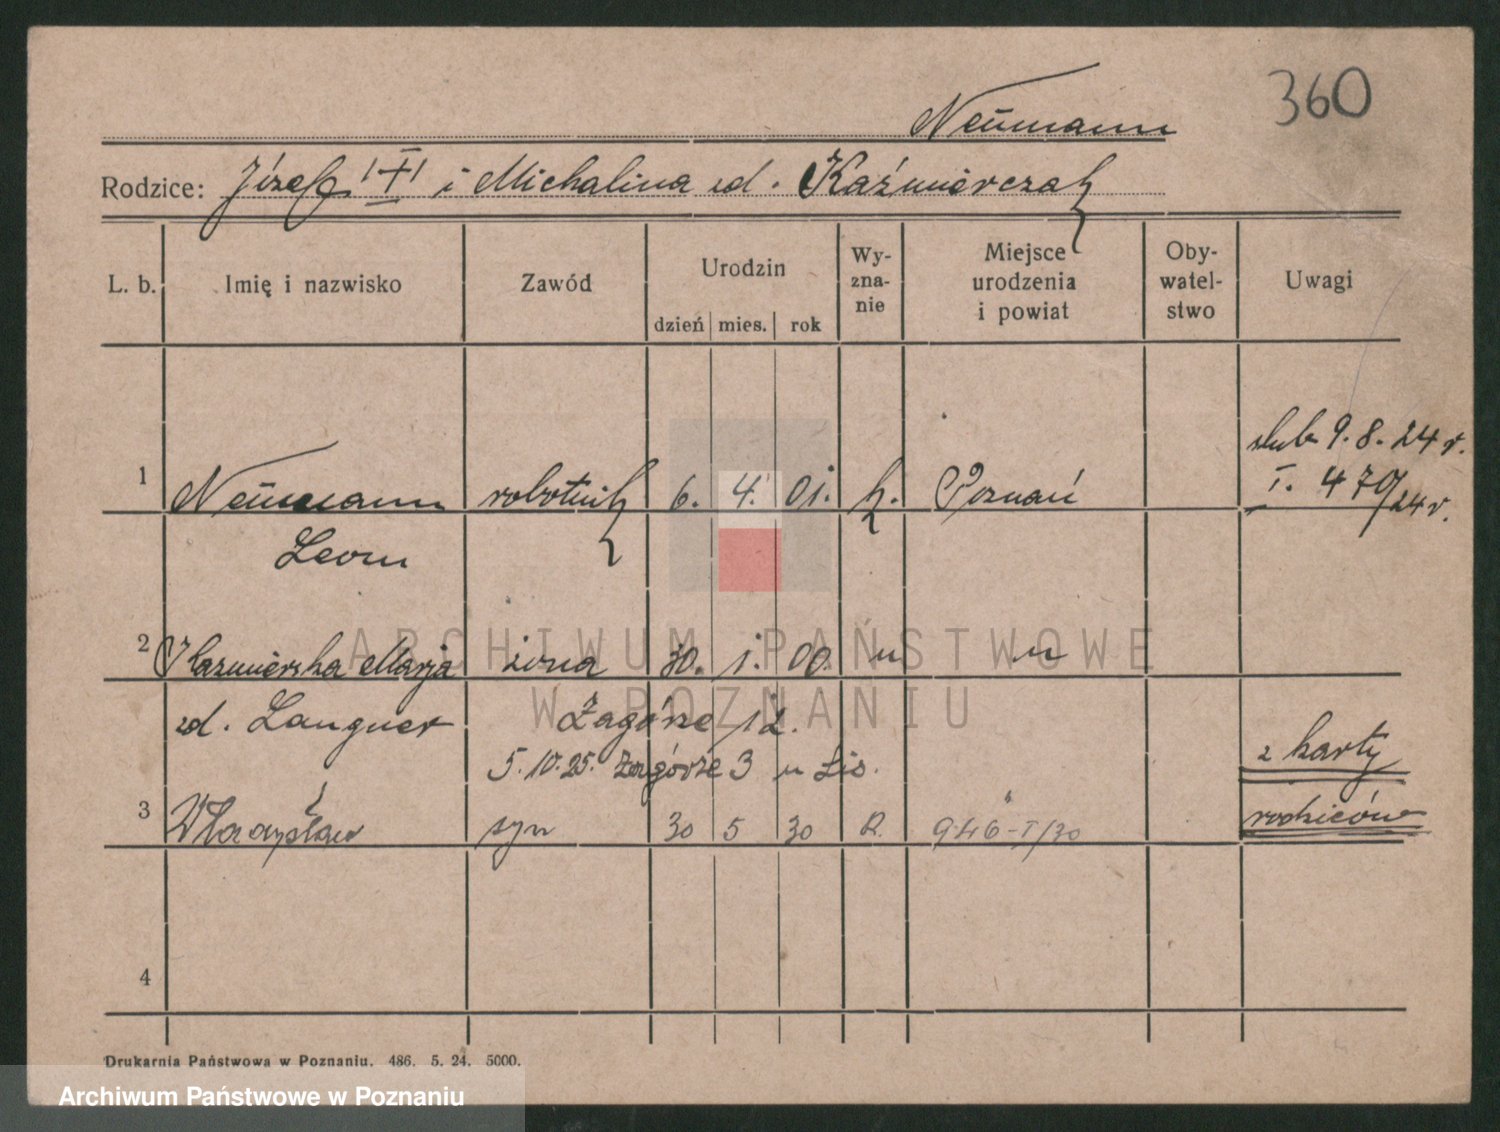 360
Neumann
Rodzice: Józef i Michalina zd. Kaźmierczak
L. b. Imię i nazwisko Zawód Urodzin dzień mies. rok Wyznanie Miejsce urodzenia i powiat Obywatelstwo Uwagi
ślub 9. 8. 24 r.
1 Neumann robotnik 6. 4. 01. k. Poznań I. 470/24 r.
Leon
2 Kazimierska Marja żona 30. 1. 00. " "
zd. Languer Zagórze 12.
5.10.25. Zagórze 3 z karty
3 Władysław syn 30 5 30 R. 946-I/30 rodziców
4
Drukarnia Państwowa w Poznaniu. 486. 5. 24. 5000.
ARCHIWUM PAŃSTWOWE
W POZNANIU
Archiwum Państwowe w Poznaniu